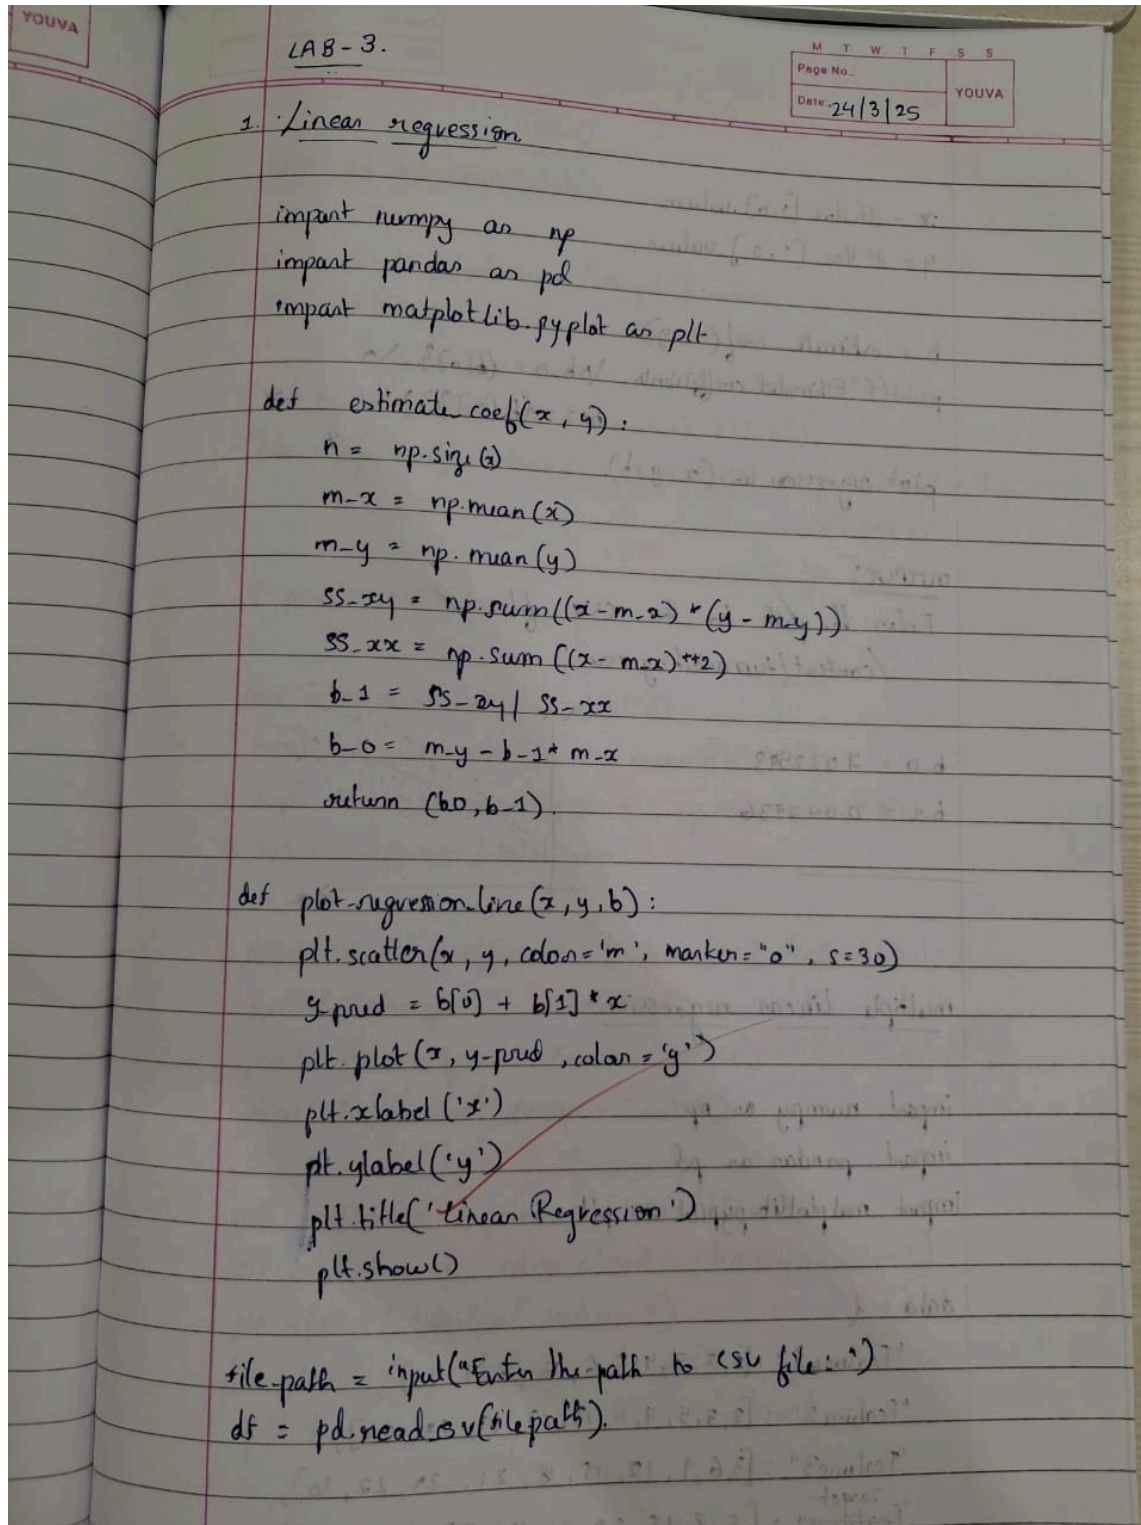 YOUVA
LAB-3.
M T W T F S S
Page No.:
Date: 24/3/25
YOUVA
1. Linear regression
import numpy as np
import pandas as pd
import matplotlib.pyplot as plt
def estimate_coef(x, y):
n = np.size(x)
m_x = np.mean(x)
m_y = np.mean(y)
ss_xy = np.sum((x - m_x) * (y - m_y))
ss_xx = np.sum((x - m_x)**2)
b_1 = ss_xy / ss_xx
b_0 = m_y - b_1 * m_x
return (b0, b_1).
def plot_regression_line(x, y, b):
plt.scatter(x, y, color='m', marker="o", s=30)
y_pred = b[0] + b[1] * x
plt.plot(x, y_pred, color='y')
plt.xlabel('x')
plt.ylabel('y')
plt.title('Linear Regression')
plt.show()
file_path = input("Enter the path to csv file: ")
df = pd.read_csv(file path).